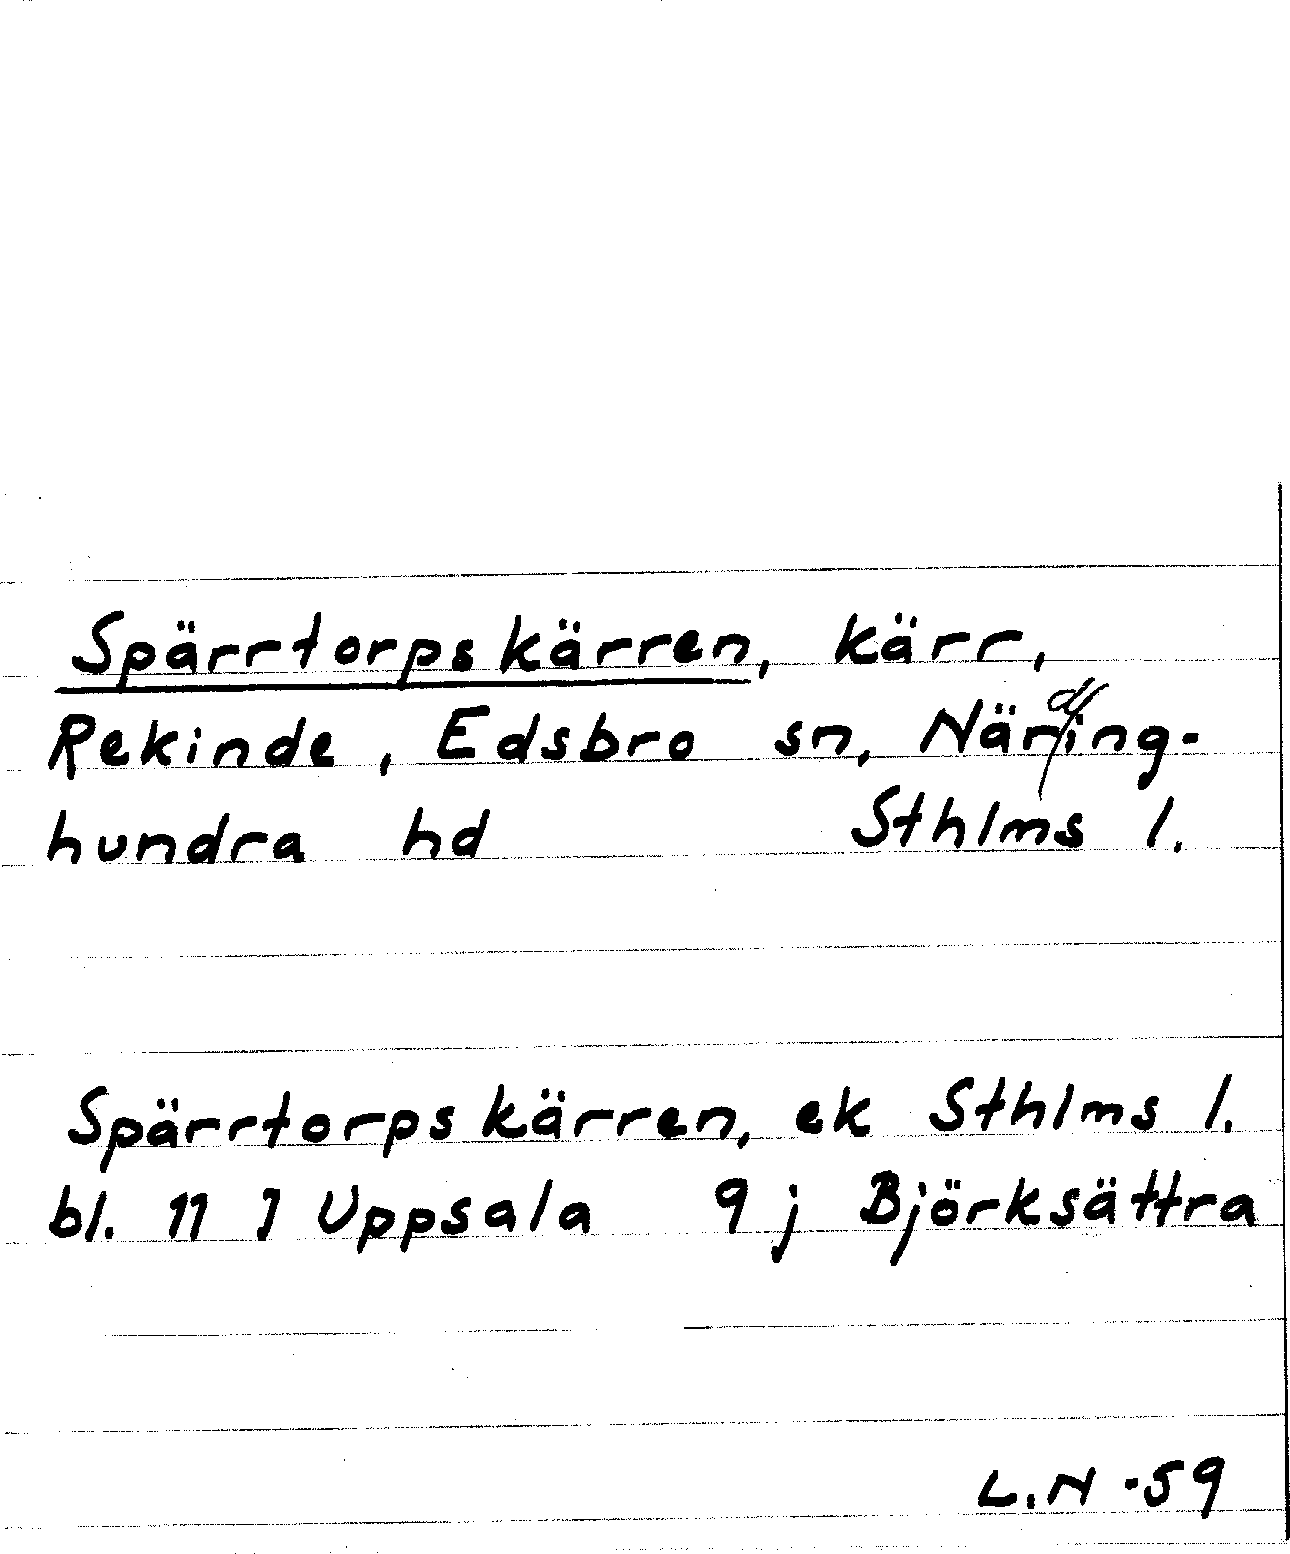 Spärrtorpskärren, kärr,
Rekinde, Edsbro sn, Närding-
hundra hd Sthlms l.
Spärrtorpskärren, ek Sthlms l.
bl. 11 J Uppsala 9 j Björksättra
L.N -59